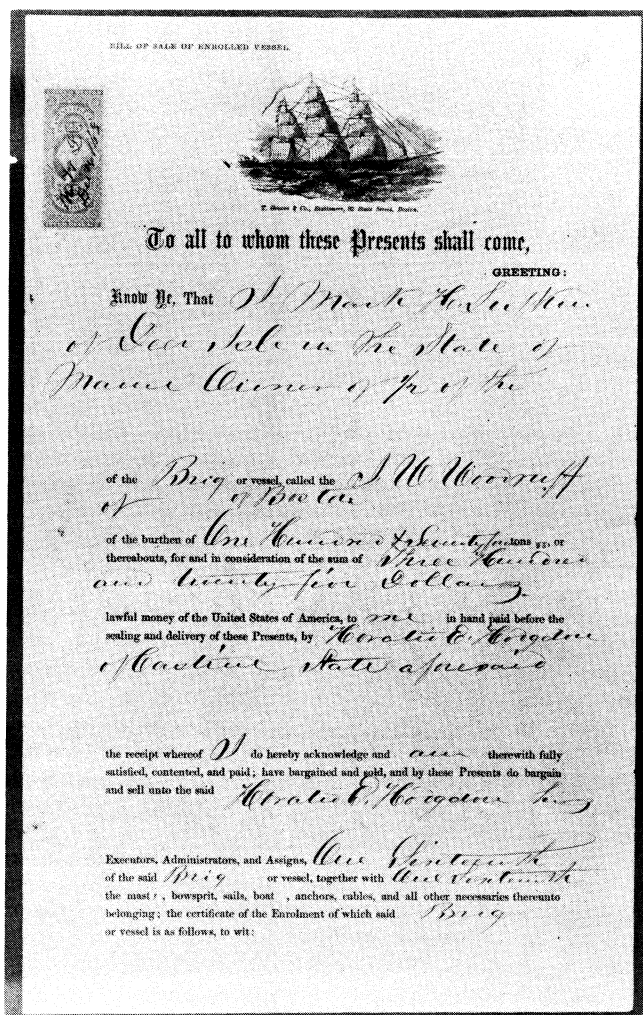 BILL OF SALE OF ENROLLED VESSEL.
T. Groom & Co., Stationers, 82 State Street, Boston.
To all to whom these Presents shall come,
GREETING:
Know Ye, That I Mark H.
of Deer Isle in the State of
Maine Owner of of the
of the Brig or vessel, called the J W Woodruff
of of Boston
of the burthen of One Hundred & Seventy four tons or
thereabouts, for and in consideration of the sum of Three Hundred
and twenty five Dollars
lawful money of the United States of America, to me in hand paid before the
sealing and delivery of these Presents, by Horatio E. Hodgdon
of Castine State aforesaid
the receipt whereof I do hereby acknowledge and am therewith fully
satisfied, contented, and paid; have bargained and sold, and by these Presents do bargain
and sell unto the said Horatio E. Hodgdon his
Executors, Administrators, and Assigns, One Sixteenth
of the said Brig or vessel, together with One Sixteenth
the mast , bowsprit, sails, boat , anchors, cables, and all other necessaries thereunto
belonging; the certificate of the Enrolment of which said Brig
or vessel is as follows, to wit: